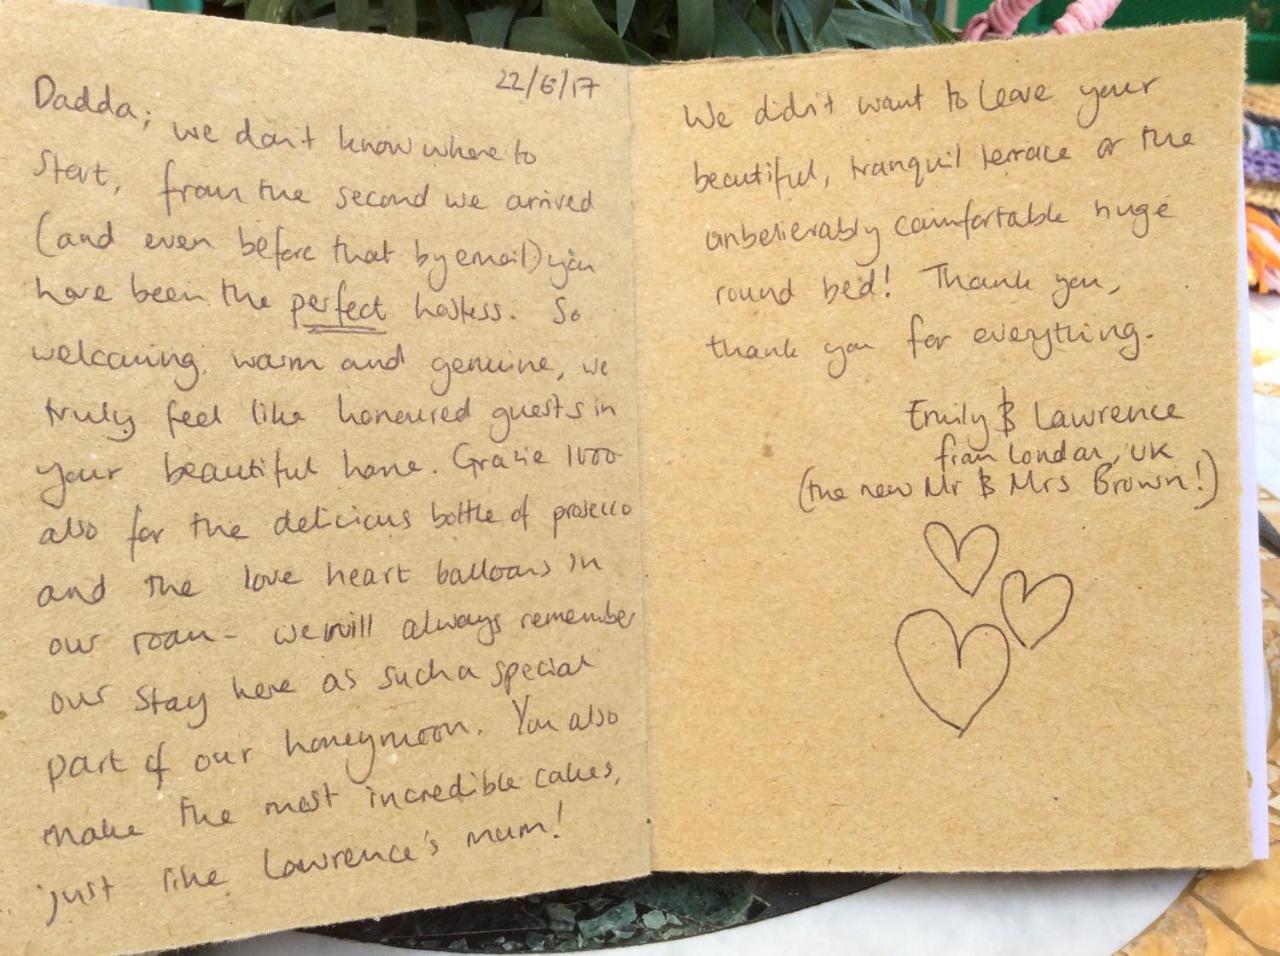 22/6/17
Dadda; we don't know where to
start, from the second we arrived
(and even before that by email) you
have been the perfect hostess. So
welcoming, warm and genuine, we
truly feel like honoured guests in
your beautiful home. Grazie 1000
also for the delicious bottle of prosecco
and the love heart balloons in
our room - we will always remember
our stay here as such a special
part of our honeymoon. You also
make the most incredible cakes,
just like Lawrence's mum!
We didn't want to leave your
beautiful, tranquil terrace or the
unbelievably comfortable huge
round bed! Thank you,
thank you for everything.
Emily & Lawrence
from London, UK
(the new Mr & Mrs Brown!)